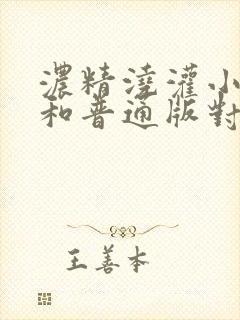 濃精澆灌小
和普通版對
王善本